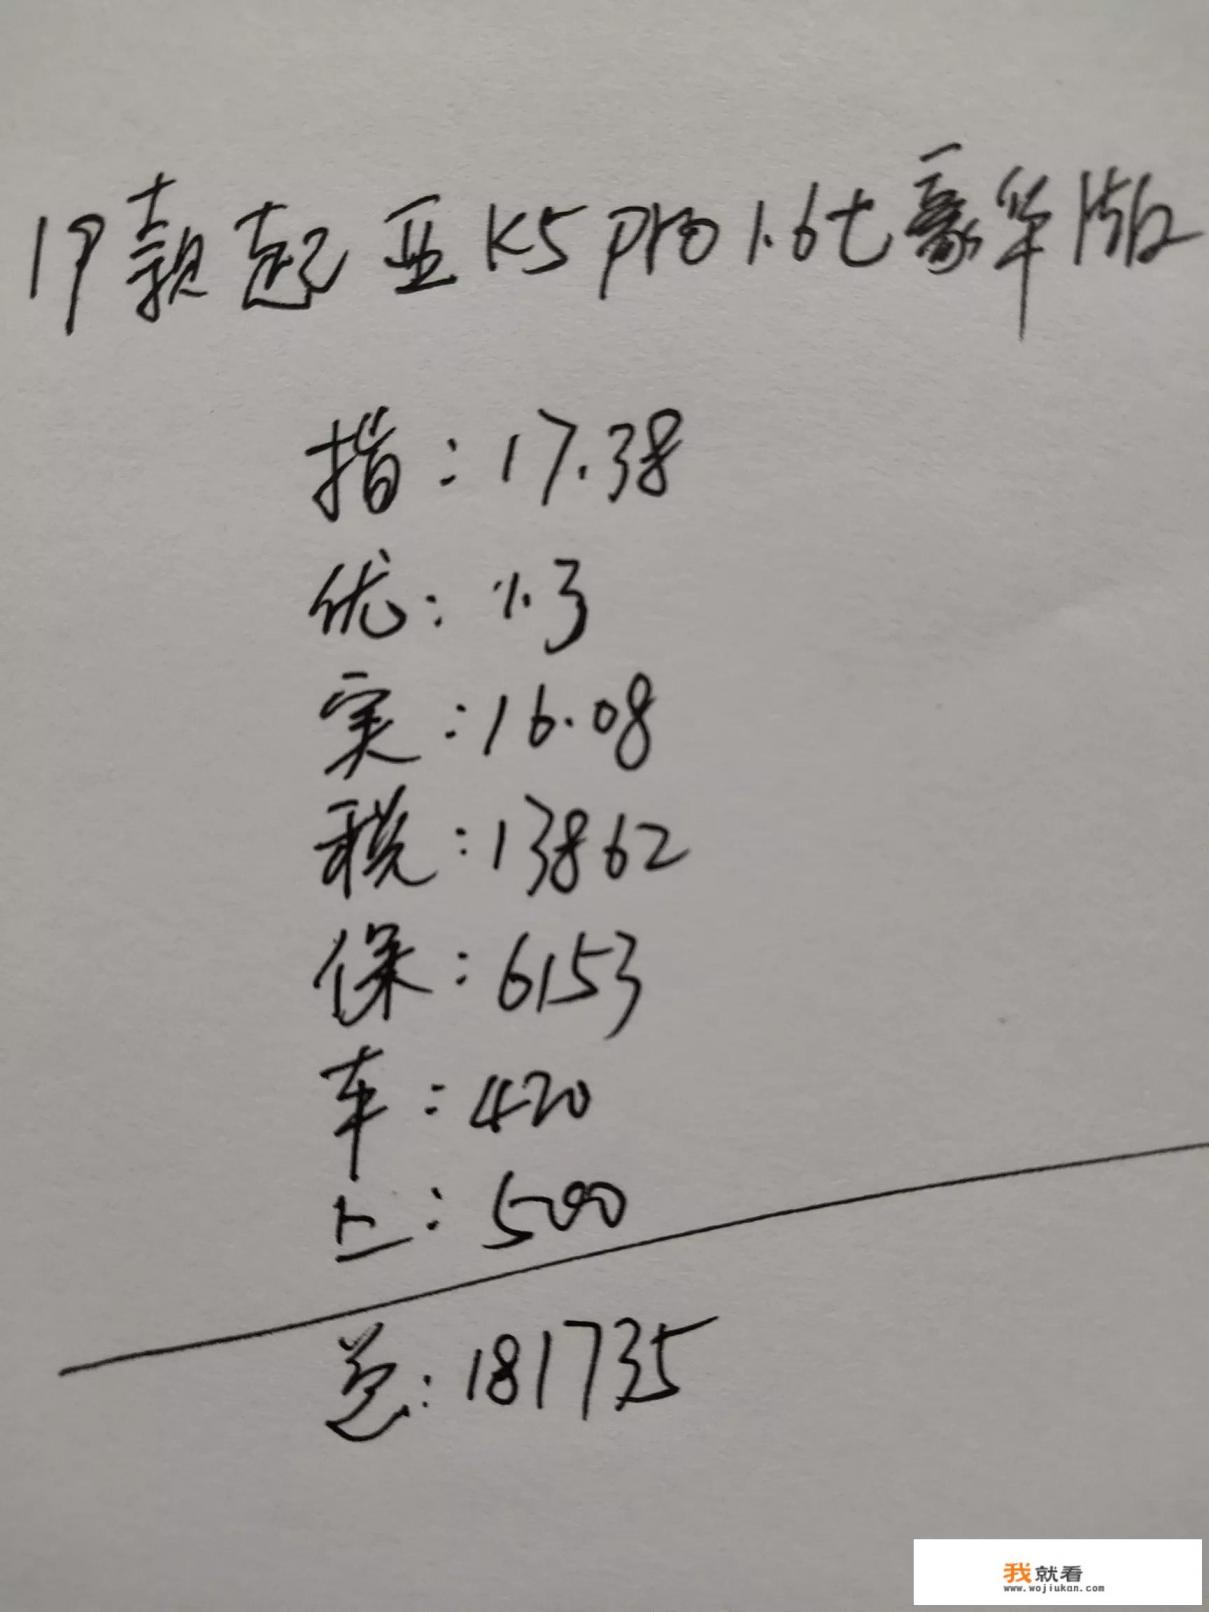 19款起亚K5 pro 1.6t豪华版
指:17.38
优:1.3
实:16.08
税:13862
保:6153
车:420
上:500
总:181735
我就看
www.wojiukan.com